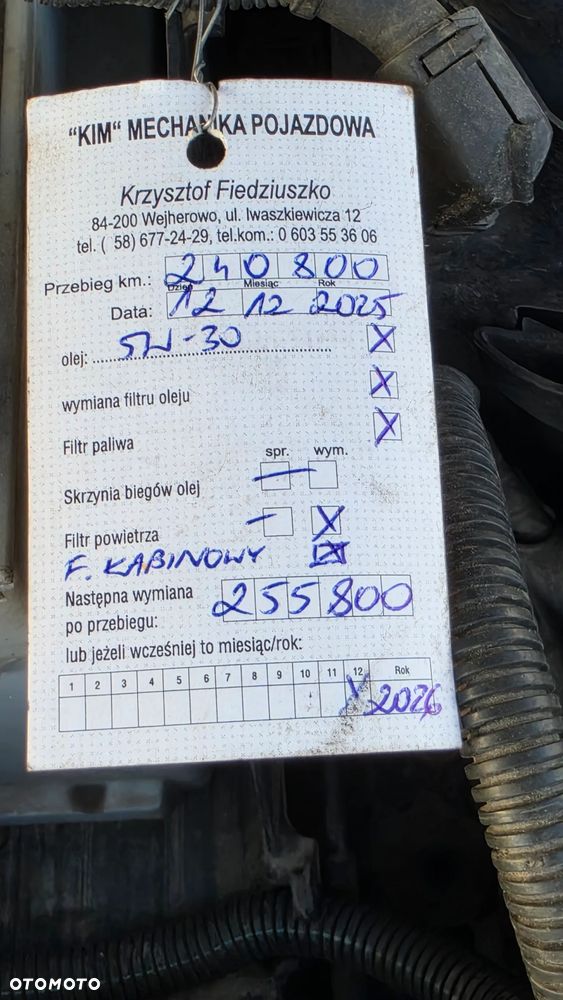 "KIM" MECHANIKA POJAZDOWA
Krzysztof Fiedziuszko
84-200 Wejherowo, ul. Iwaszkiewicza 12
tel. ( 58) 677-24-29, tel.kom.: 0 603 55 36 06
Przebieg km.: 240 800
Dzień Miesiąc Rok
Data: 12 12 2025
olej: 5W-30 X
wymiana filtru oleju X
Filtr paliwa X
spr. wym.
Skrzynia biegów olej —
Filtr powietrza — X
F. KABINOWY X
Następna wymiana
po przebiegu: 255800
lub jeżeli wcześniej to miesiąc/rok:
1 2 3 4 5 6 7 8 9 10 11 12 Rok
X 2026
OTOMOTO